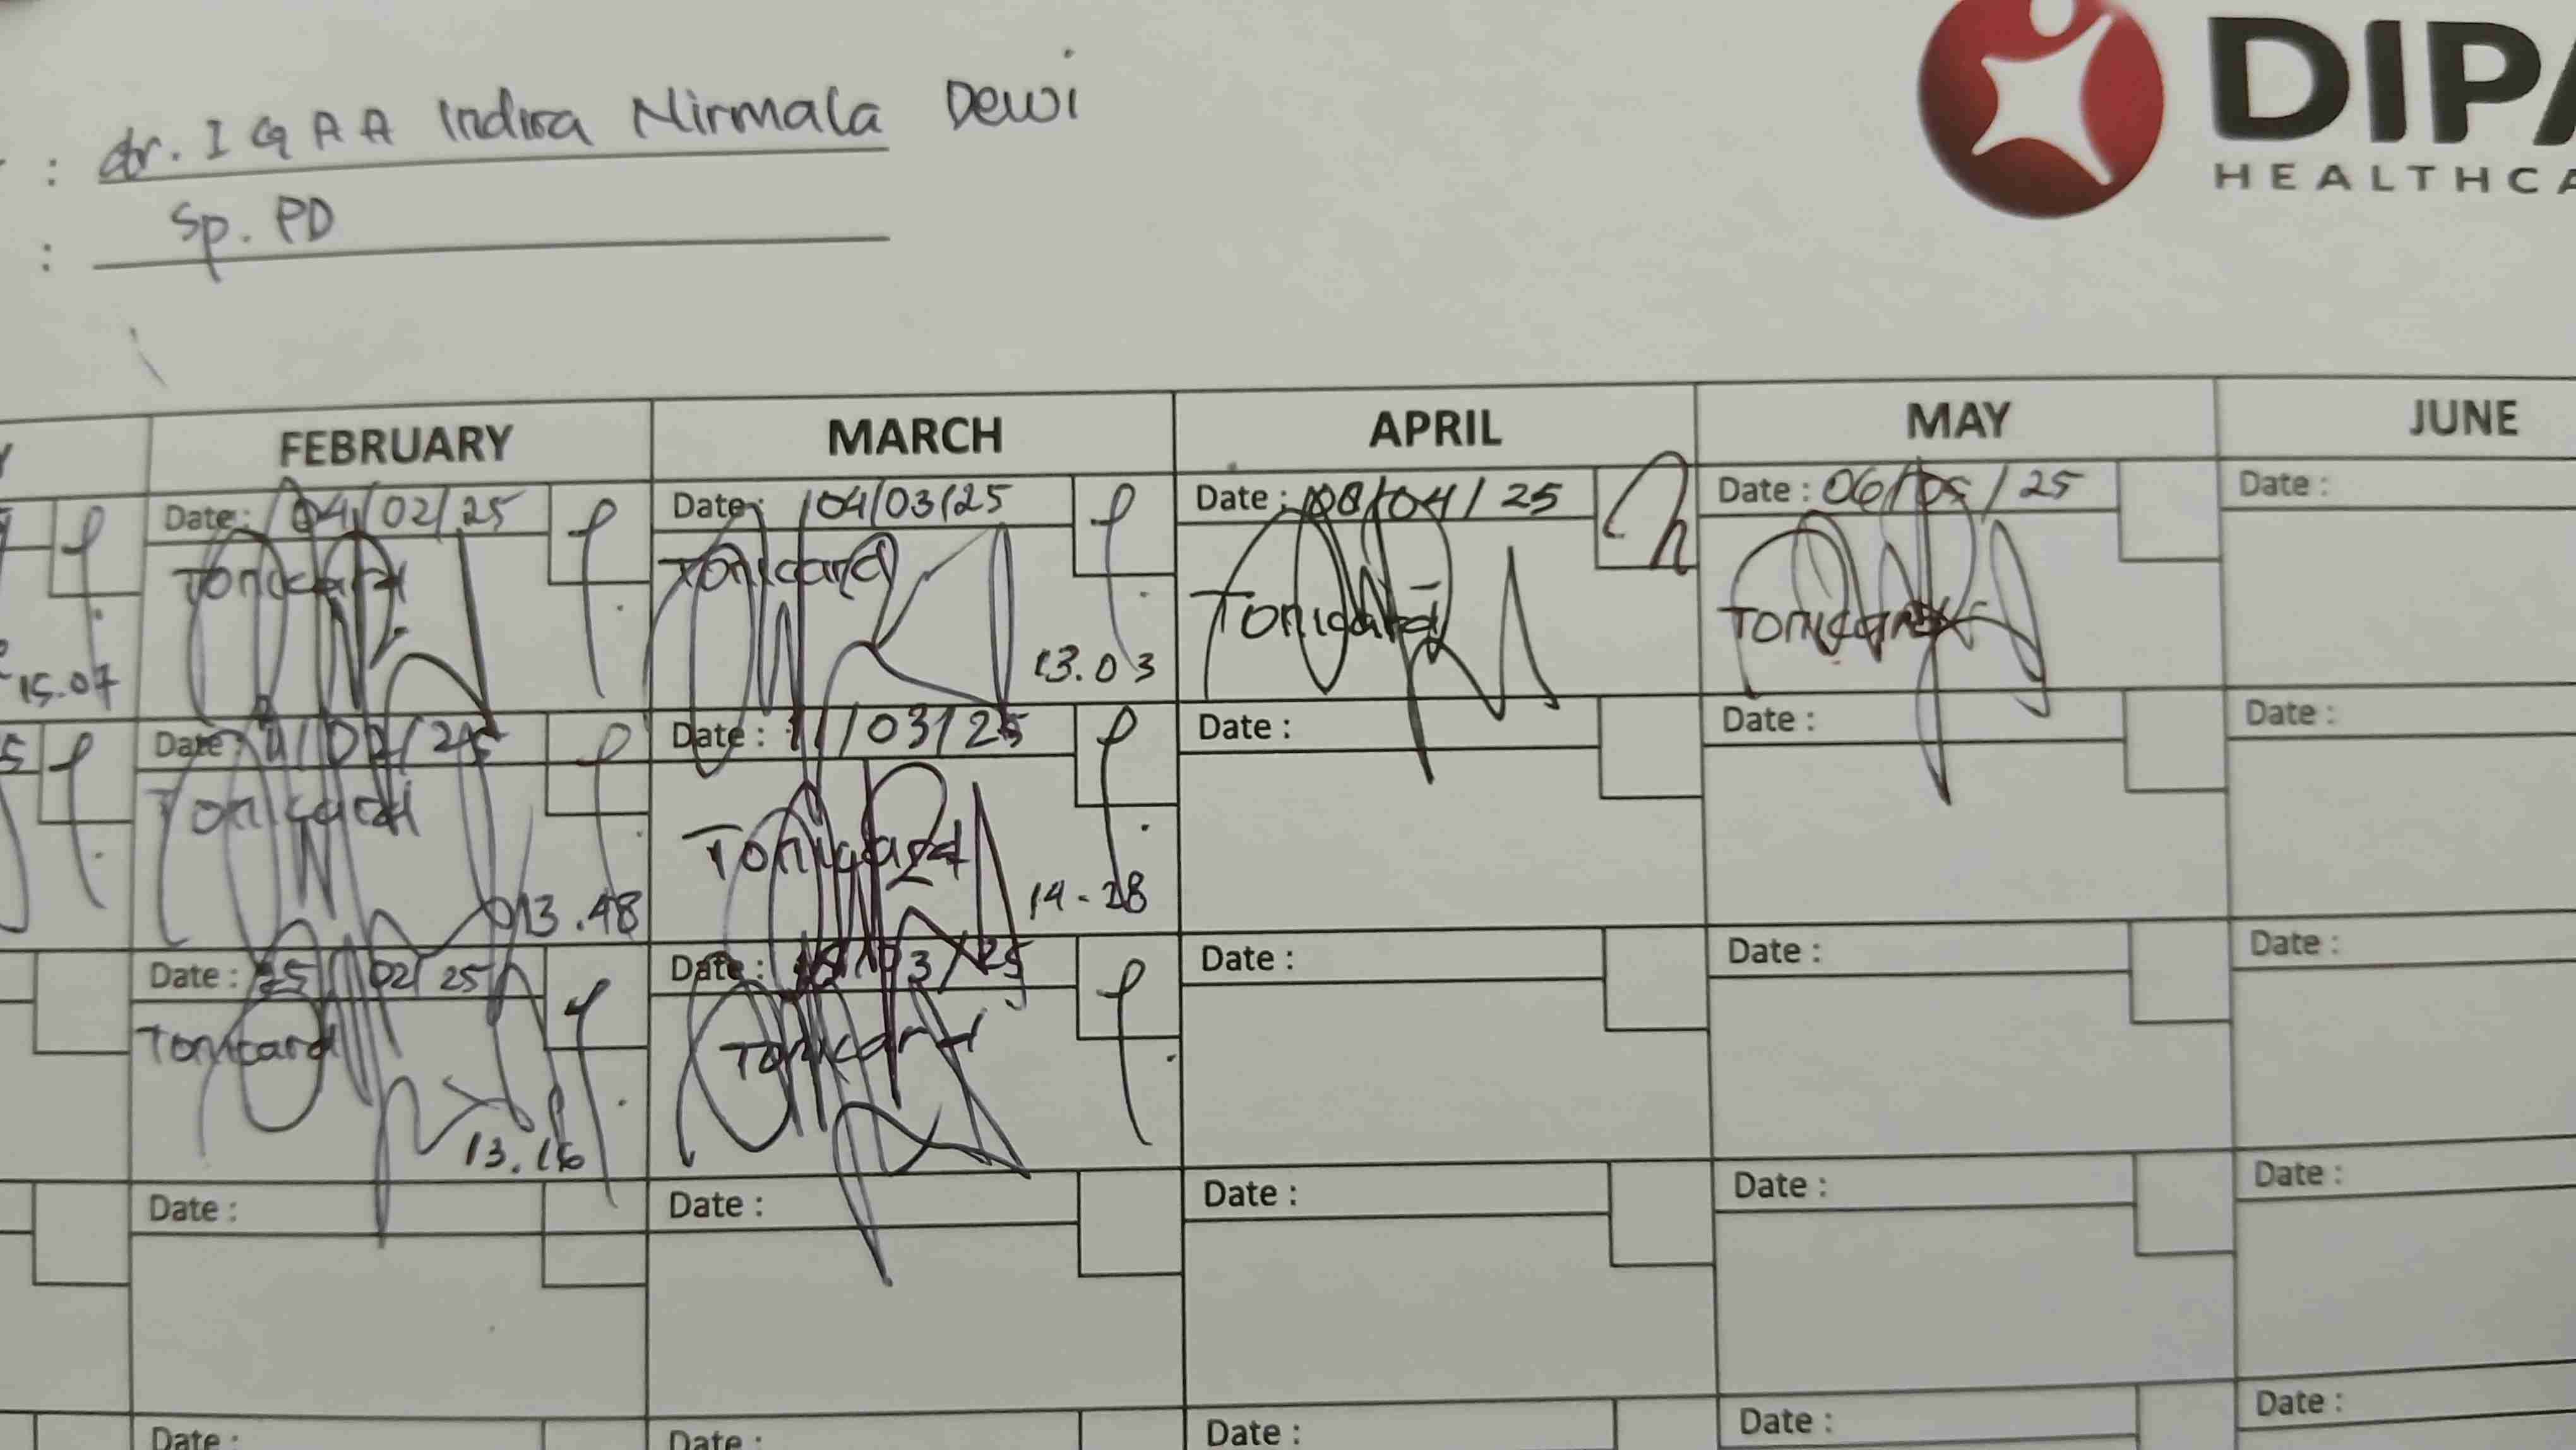 : dr. I G A A Indira Nirmala Dewi
: Sp. PD
DIPA
HEALTHCA
FEBRUARY MARCH APRIL MAY JUNE
Date: 04/02/25 Date: 04/03/25 Date: 08/04/25 Date: 06/05/25 Date:
Tonicard Tonicard Tonicard Tonicard
15.07 13.03
Date: 11/02/25 Date: 11/03/25 Date: Date: Date:
Tonicard Tonicard
13.48 14-28
Date: 25/02/25 Date: /03/25 Date: Date: Date:
Tonicard Tonicard
13.16
Date: Date: Date: Date: Date:
Date: Date: Date: Date: Date: